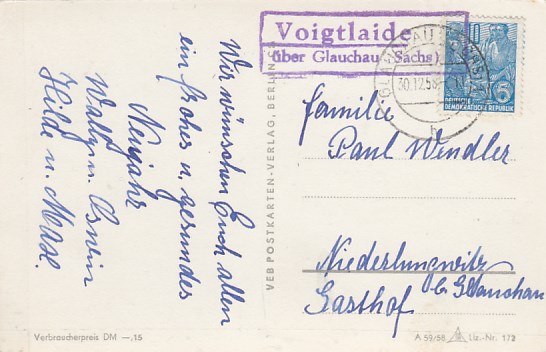 Wir wünschen Euch allen
ein frohes u. gesundes
Neujahr
Walter u. Oswin
Hilde u. Max.
Voigtlaide
über Glauchau (Sachs)
GLAUCHAU
30.12.58
h
10
5
DEUTSCHE
DEMOKRATISCHE REPUBLIK
Familie
Paul Wendler
Niederlungwitz
b. Glauchau
Gasthof
VEB POSTKARTEN-VERLAG, BERLIN
Verbraucherpreis DM —,15
A 59/58 Liz.-Nr. 172